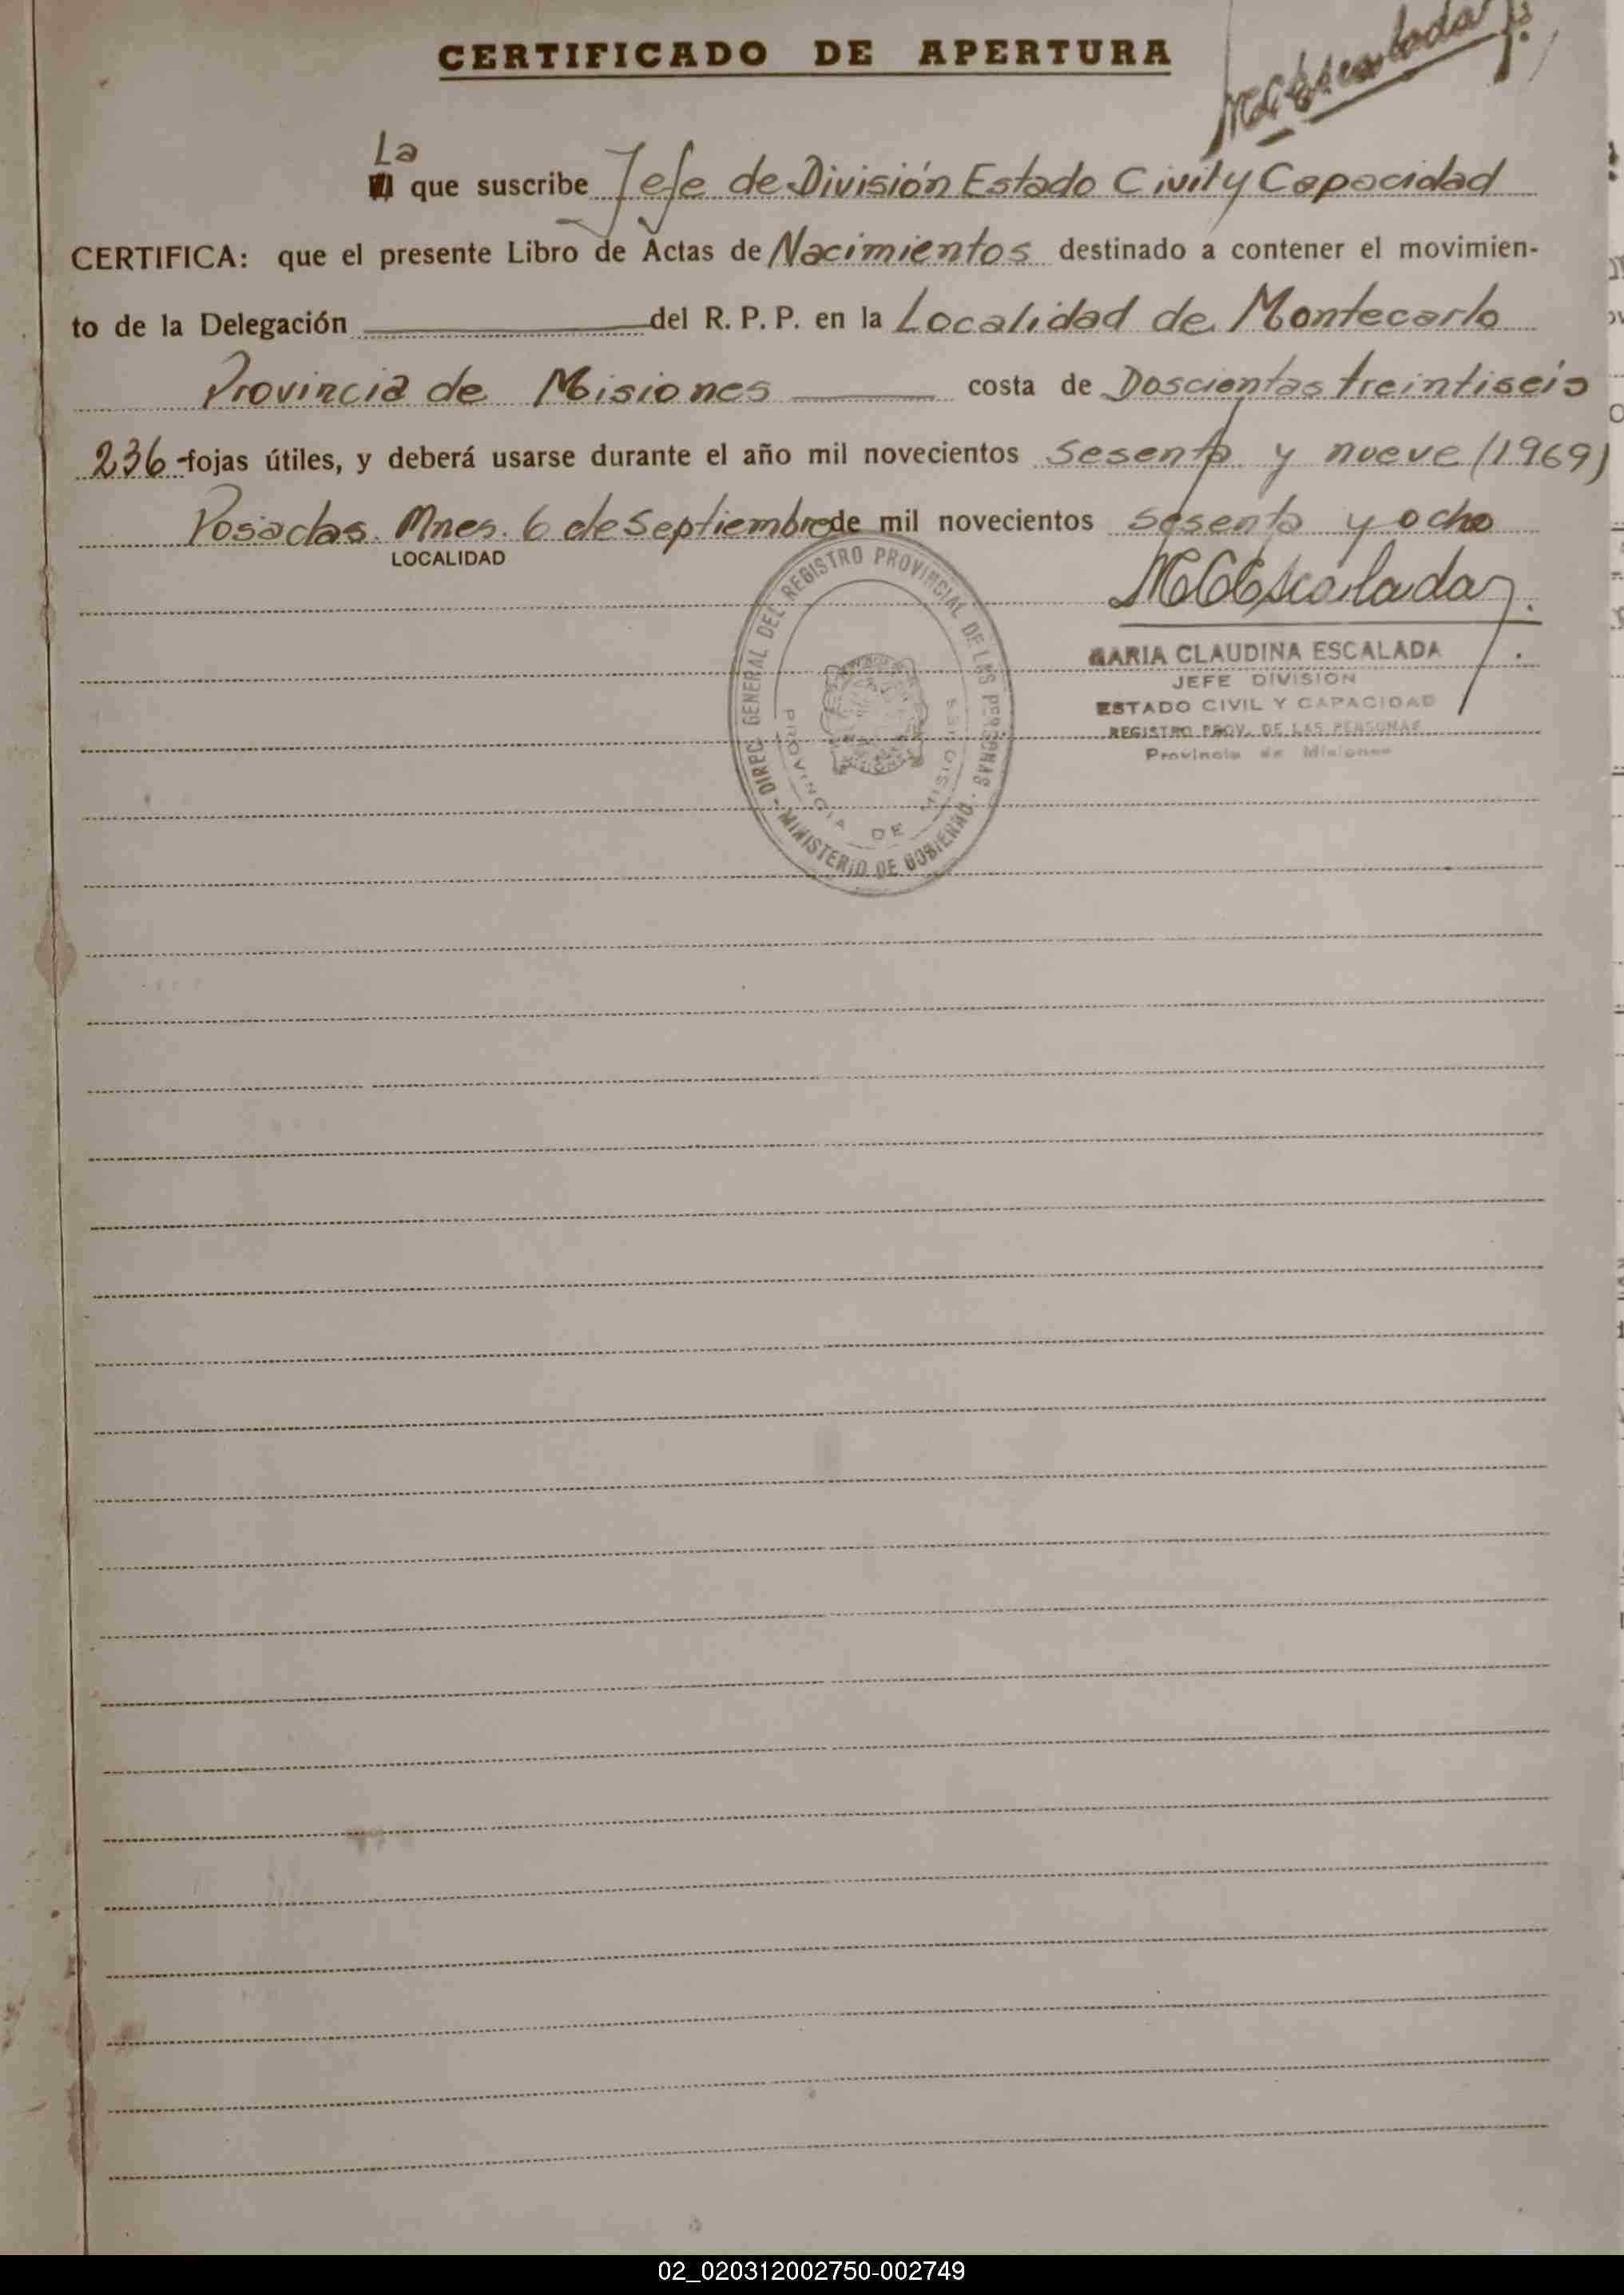 CERTIFICADO DE APERTURA
MCEscalada
La
que suscribe Jefe de División Estado Civil y Capacidad
CERTIFICA: que el presente Libro de Actas de Nacimientos destinado a contener el movimien-
to de la Delegación del R. P. P. en la Localidad de Montecarlo
Provincia de Misiones costa de Doscientas treintiseis
236 fojas útiles, y deberá usarse durante el año mil novecientos sesenta y nueve (1969)
Posadas. Mnes. 6 de Septiembre de mil novecientos sesenta y ocho
LOCALIDAD
MCEscalada
MARIA CLAUDINA ESCALADA
JEFE DIVISION
ESTADO CIVIL Y CAPACIDAD
REGISTRO PROV. DE LAS PERSONAS
Provincia de Misiones
DIREC. GENERAL DEL REGISTRO PROVINCIAL DE LAS PERSONAS - MINISTERIO DE GOBIERNO -
PROVINCIA DE MISIONES
02_020312002750-002749